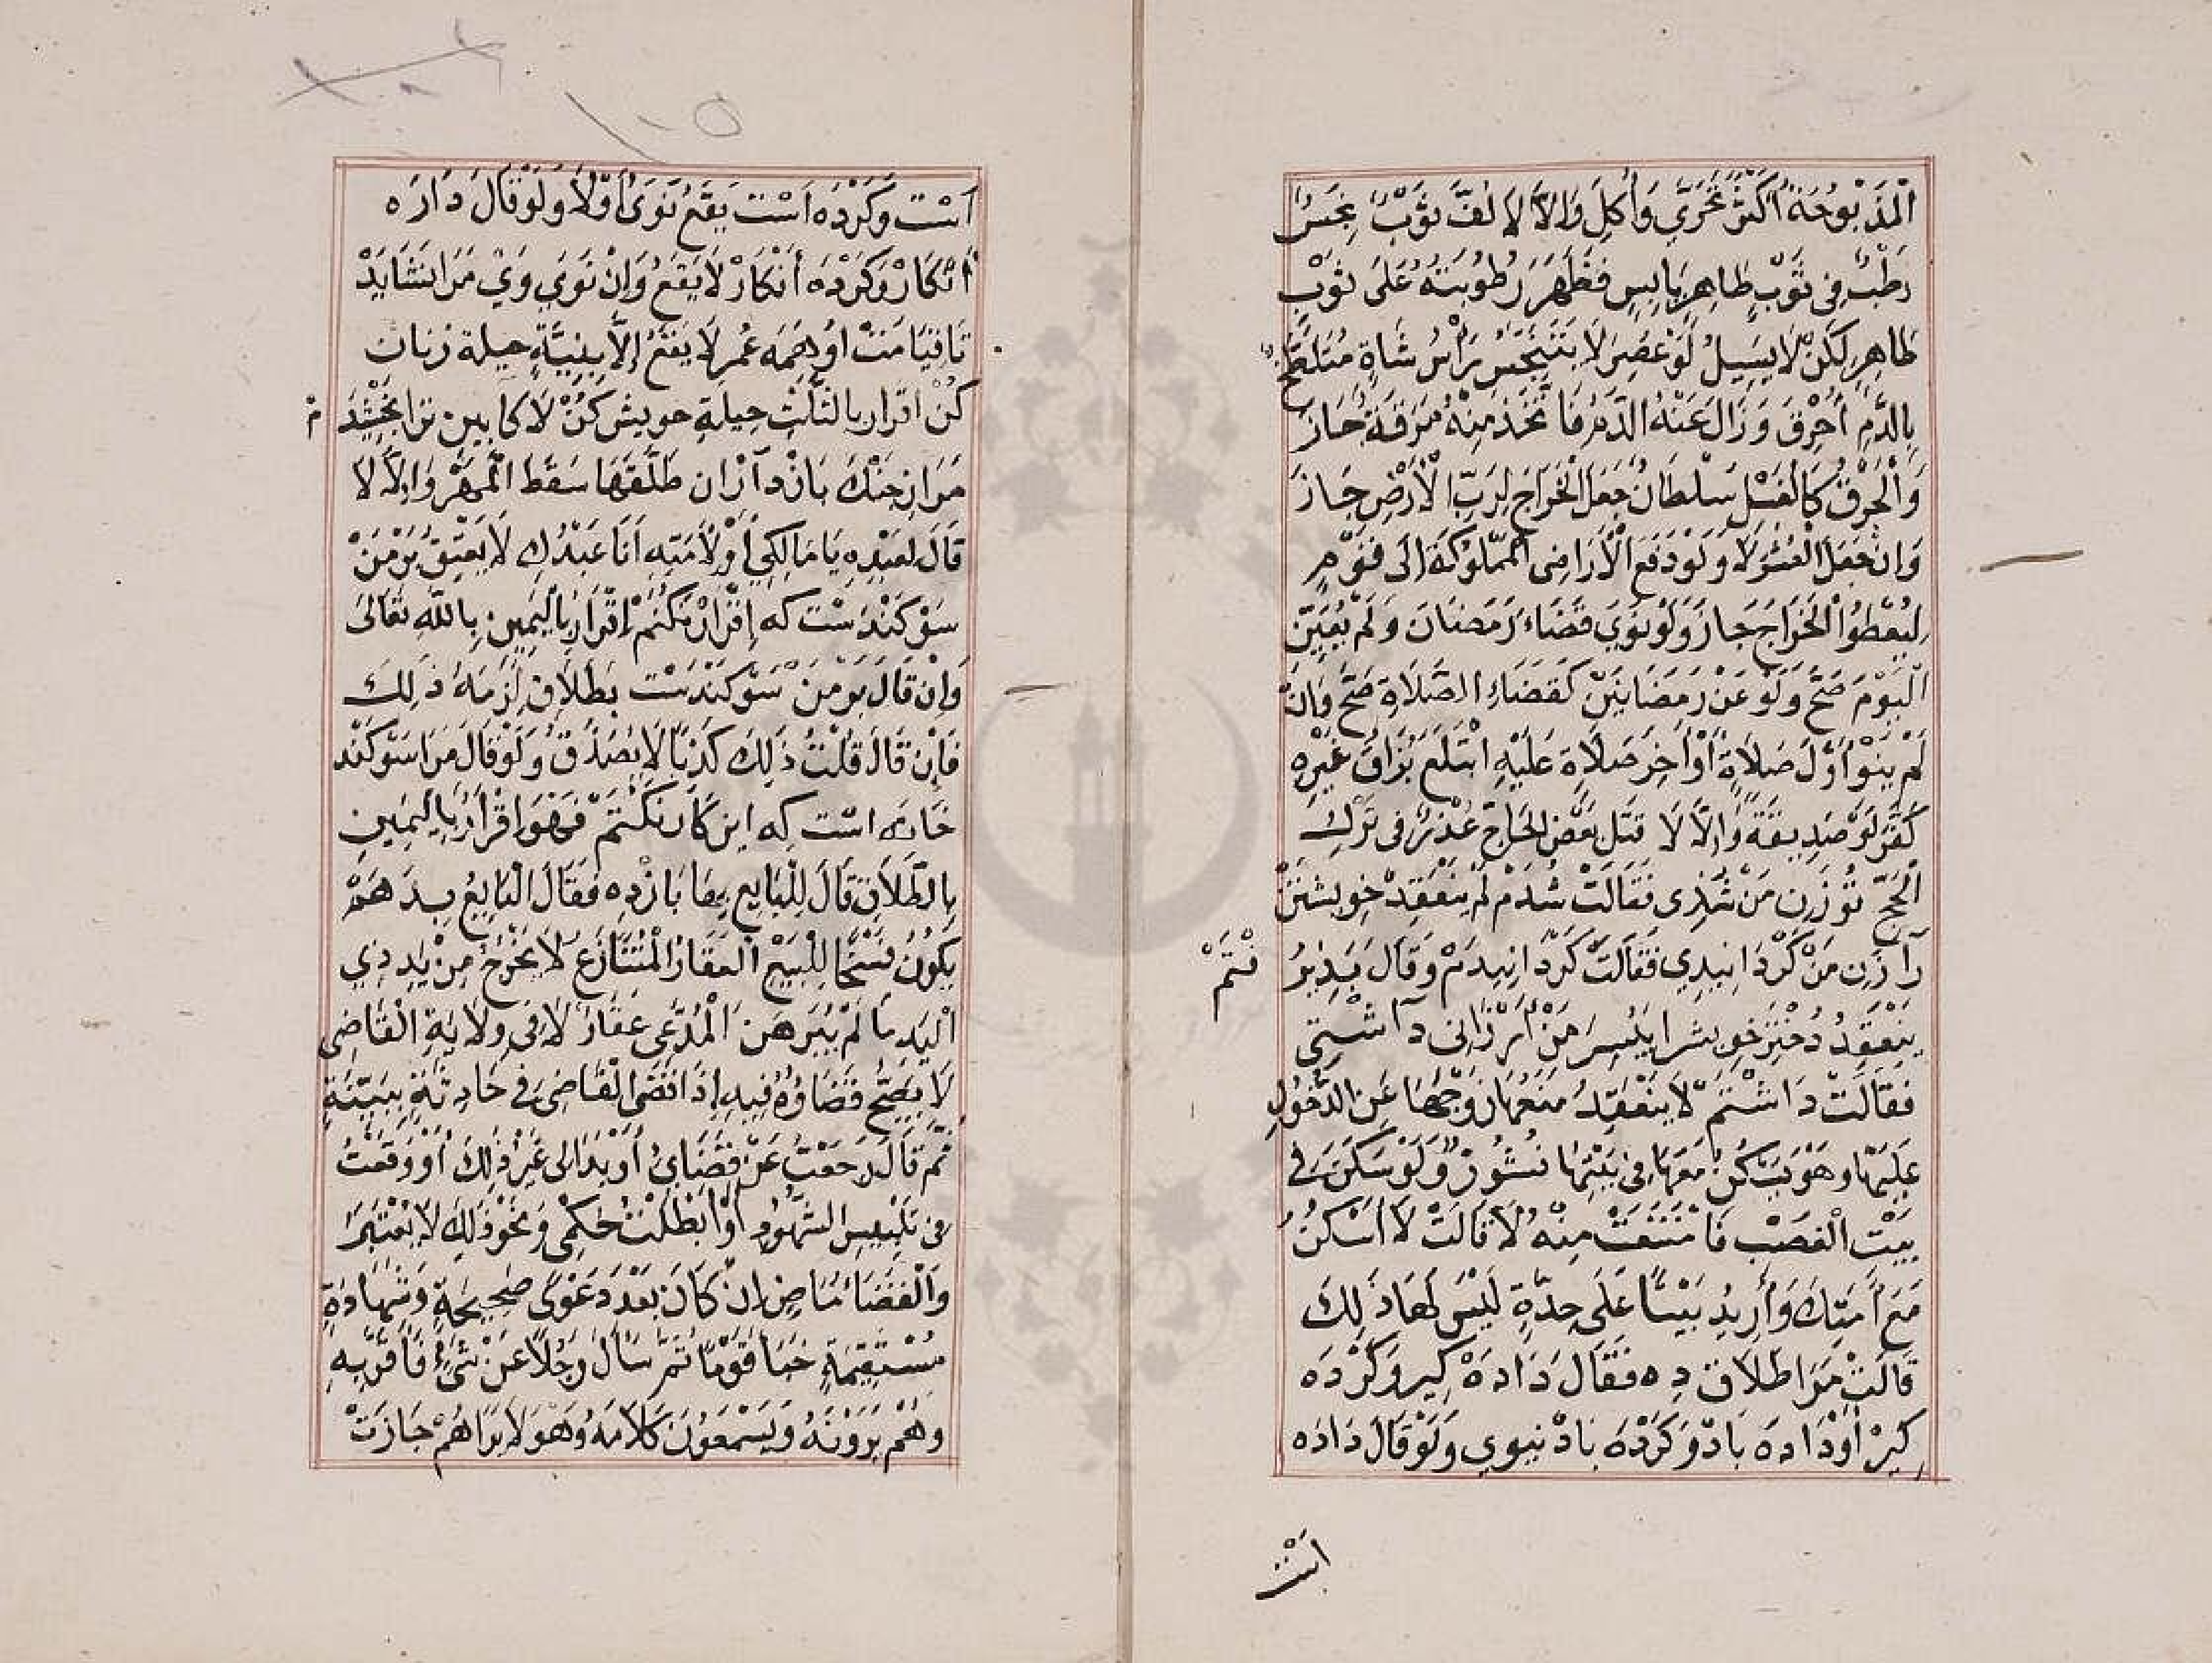 الْمَذْبُوحَةُ أَكْثَرَ تَحَرَّي وَأُكِلَ وَإِلاَّ لا لُفَّ ثَوْبٌ نَجِسٌ
رَطْبٌ فِي ثَوْبٍ طَاهِرٍ يَابِسٍ فَظَهَرَ رُطُوبَتُهُ عَلَى ثَوْبٍ
طَاهِرٍ لَكِنْ لَا يَسِيلُ لَوْ عُصِرَ لَا يَتَنَجَّسُ رَأْسُ شَاةٍ مُتَلَطَّخٌ
بِالدَّمِ أُحْرِقَ وَزَالَ عَنْهُ الدَّمُ فَاتُّخِذَ مِنْهُ مَرَقَةٌ جَازَ
وَالْحَرْقُ كَالْغَسْلِ سُلْطَانٌ جَعَلَ الْخَرَاجَ لِرَبِّ الْأَرْضِ جَازَ
وَإِنْ جَعَلَ الْعُشْرَ لَا وَلَوْ دَفَعَ الْأَرَاضِي الْمَمْلُوكَةَ إِلَى قَوْمٍ
لِيُعْطُوا الْخَرَاجَ جَازَ وَلَوْ نَوَي قَضَاءَ رَمَضَانَ وَلَمْ يُعَيِّنْ
الْيَوْمَ صَحَّ وَلَوْ عَنْ رَمَضَانَيْنِ كَقَضَاءِ الصَّلَاةِ صَحَّ وَإِنْ
لَمْ يَنْوِ أَوَّلَ صَلَاةٍ أَوْ آخِرَ صَلَاةٍ عَلَيْهِ ابْتَلَعَ بُزَاقَ غَيْرِهِ
كَفَّرَ لَوْ صَدِيقَهُ وَإِلَّا لَا قَتْلُ بَعْضِ الْحَاجِّ عُذْرٌ فِي تَرْكِ
الْحَجِّ تُو زَنِ مَنْ شُدِي فَقَالَتْ شُدَمْ لَمْ يَنْعَقِدْ خويشتن
رَا زَنِ مَنْ كَرْدَانِيدِي فَقَالَتْ كَرْدَانِيدَمْ وَقَالَ بَذِيرُ فْتَمْ
يَنْعَقِدُ دُخْتَرِ خويشرا بِپُسَرِ مَنْ أَرْزَانِي دَاشْتِي
فَقَالَتْ دَاشْتَمْ لَا يَنْعَقِدُ مَنَعَهَا زَوْجَهَا عَنِ الدُّخُولِ
عَلَيْهَا وَهُوَ يَسْكُنُ مَعَهَا فِي بَيْتِهَا نُشُوزٌ وَلَوْ سَكَنَ فِي
بَيْتِ الْغَصْبِ فَامْتَنَعَتْ مِنْهُ لَا قَالَتْ لَا أَسْكُنُ
مَعَ أَمَتِكَ وَأُرِيدُ بَيْتًا عَلَى حِدَةٍ لَيْسَ لَهَا ذَلِكَ
قَالَتْ مَرَا طلاق دِه فَقَالَ دَادَهْ كِير وَكَرْدَه
كِيرْ أَوْ دَادَه بَادْ وَكَرْدَهْ بَادْ يَنْوِي وَلَوْ قَالَ دَادَه
اسْت
اَسْت وَكَرْدَه اَسْت يَقَعُ نَوَى أَوْ لَا وَلَوْ قَالَ دَادَه
أَنْكَارْ وَكَرْدَه أَنْكَارْ لَا يَقَعُ وَإِنْ نَوَي وَيْ مَرَا نَشَايَدْ
تَا قِيَامَتْ أَوْ هَمَه عُمر لَا يَقَعُ إِلَّا بِنِيَّةٍ حيلة زنان
كُنْ اقرار بالثَّلْثِ حِيلَةِ خويش كُنْ لَا كابين ترا بخْشِيدَ مْ
مَرَا از چنْكَ بَازْ دَار ان طَلَّقَهَا سَقَطَ الْمَهْرُ وَإِلَّا لَا
قَالَ لِعَبْدِهِ يَا مَالِكِي أَوْ لِأَمَتِهِ أَنَا عَبْدُكِ لَا يَعْتِقُ بَرْ مَنْ
سَوْكَنْدَسْت كه إِقْرَارْ نَكُنَمْ إِقْرَارٌ بِالْيَمِينِ بِاللَّهِ تَعَالَى
وَإِنْ قَالَ بَرْ مَنْ سَوْكَنْدَسْت بِطَلَاقٍ لَزِمَهُ ذَلِكَ
فَإِنْ قَالَ قُلْتُ ذَلِكَ كَذِبًا لَا يُصَدَّقُ وَلَوْ قَالَ مَرَا سَوْكَنْد
خَانَه اسْت كِه اين كَارْ نَكُنَمْ فَهُوَ إِقْرَارٌ بِالْيَمِينِ
بِالطَّلَاقِ قَالَ لِلْبَايِعِ بِهَا بَازْدِه فَقَالَ الْبَايِعُ بِدَهَمْ
يَكُونُ فَسْخًا لِلْبَيْعِ الْعَقَارُ الْمُتَنَازَعُ لَا يَخْرُجُ مِنْ يَدِ ذِي
الْيَدِ مَا لَمْ يُبَرْهِنِ الْمُدَّعِي عَقَارٌ لَا فِي وِلَايَةِ الْقَاضِي
لَا يَصِحُّ قَضَاؤُهُ فِيهِ إِذَا قَضَى الْقَاضِي فِي حَادِثَةٍ بِبَيِّنَةٍ
ثُمَّ قَالَ رَجَعْتُ عَنْ قَضَائِي أَوْ بَدَا لِي غَيْرُ ذَلِكَ أَوْ وَقَعْتُ
فِي تَلْبِيسِ الشُّهُودِ أَوْ أَبْطَلْتُ حُكْمِي وَنَحْوَ ذَلِكَ لَا يُعْتَبَرُ
وَالْقَضَاءُ مَاضٍ إِنْ كَانَ بَعْدَ دَعْوَى صَحِيحَةٍ وَشَهَادَةٍ
مُسْتَقِيمَةٍ خَبَأَ قَوْمًا ثُمَّ سَأَلَ رَجُلًا عَنْ شَيْءٍ فَأَقَرَّ بِهِ
وَهُمْ يَرَوْنَهُ وَيَسْمَعُونَ كَلَامَهُ وَهُوَ لَا يَرَاهُمْ جَازَتْ